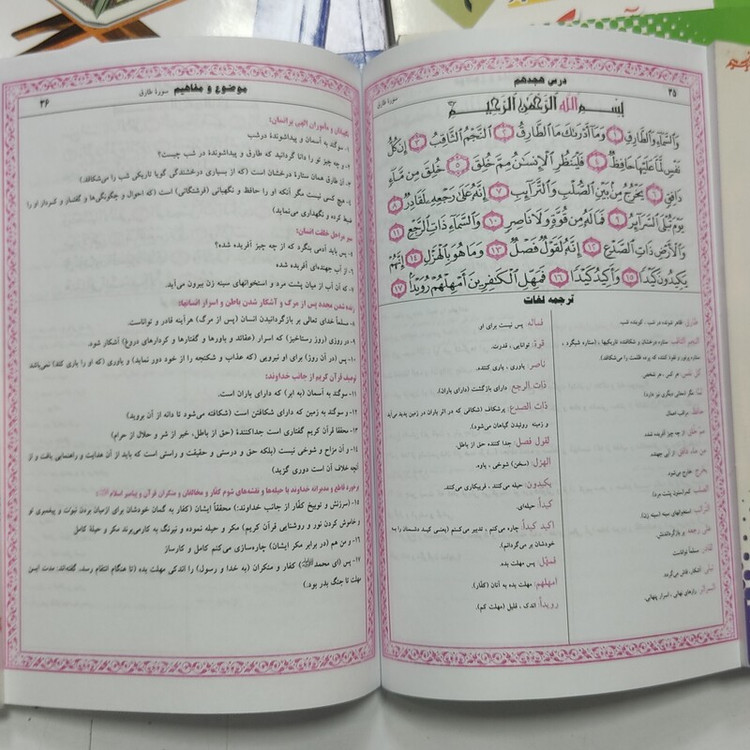 ۲۵
درس هجدهم
سورهٔ طارق
بِسْمِ اللهِ الرَّحْمٰنِ الرَّحِيمِ
وَالسَّمَاءِ وَالطَّارِقِ ۱ وَمَا أَدْرَىٰكَ مَا الطَّارِقُ ۲ النَّجْمُ الثَّاقِبُ ۳ إِن كُلُّ
نَفْسٍ لَمَّا عَلَيْهَا حَافِظٌ ۴ فَلْيَنظُرِ الْإِنسَٰنُ مِمَّ خُلِقَ ۵ خُلِقَ مِن مَّاءٍ
دَافِقٍ ۶ يَخْرُجُ مِن بَيْنِ الصُّلْبِ وَالتَّرَائِبِ ۷ إِنَّهُ عَلَىٰ رَجْعِهِ لَقَادِرٌ ۸
يَوْمَ تُبْلَى السَّرَائِرُ ۹ فَمَا لَهُ مِن قُوَّةٍ وَلَا نَاصِرٍ ۱۰ وَالسَّمَاءِ ذَاتِ الرَّجْعِ ۱۱
وَالْأَرْضِ ذَاتِ الصَّدْعِ ۱۲ إِنَّهُ لَقَوْلٌ فَصْلٌ ۱۳ وَمَا هُوَ بِالْهَزْلِ ۱۴ إِنَّهُمْ
يَكِيدُونَ كَيْدًا ۱۵ وَأَكِيدُ كَيْدًا ۱۶ فَمَهِّلِ الْكَافِرِينَ أَمْهِلْهُمْ رُوَيْدًا ۱۷
ترجمه لغات
طارق: ظاهر شونده در شب، کوبنده شب
النجم الثاقب: ستاره درخشان و شکافنده تاریکیها، (ستاره شبگرد،
کل نفس: هر کس، هر شخص
حافظ: مراقب اعمال
مم خلق: از چه چیز آفریده شده.
من ماء دافق: از آبی جهنده.
یخرج: خارج می‌شود.
الترائب: استخوانهای سینه (سینه زن).
لقادر: مسلماً تواناست
تبلی: آشکار، فاش می‌گردد.
السرائر: رازهای نهانی، اسرار پنهانی.
فماله: پس نیست برای او
قوة: توانایی، قدرت.
ناصر: یاوری، یاری کننده.
ذات الرجع: دارای بازگشت (دارای باران)
ذات الصدع: پرشکاف (شکافی که در اثر باران در زمین پدید می‌آید
و زمینه روئیدن گیاهان می‌شود)
لقول فصل: جدا کننده حق از باطل.
الهزل: (سخن) شوخی، یاوه.
یکیدون: حیله می‌کنند، فریبکاری می‌کنند.
کیداً: حیله‌ای.
اکید کیداً: چاره می‌کنم، تدبیر می‌کنم (یعنی کید دشمنان را به
خودشان بر می‌گردانم).
فمهّل: پس مهلت بده
امهلهم: مهلت بده به آنان (کفار).
رویداً: اندک، قلیل (مهلت کم).
۲۶
موضوع و مفاهیم
سورهٔ طارق
نگهبانان و مأموران الهی بر انسان:
۱- سوگند به آسمان و پیداشوندهٔ درشب
۲- و چه چیز تو را دانا گردانید که طارق و پیداشوندهٔ در شب چیست؟
۳- آن طارق همان ستارهٔ درخشان است (که از بسیاری درخشندگی گویا تاریکی شب را می‌شکافد)
۴- هیچ کسی نیست مگر آنکه او را حافظ و نگهبانی (فرشتگانی) است (که احوال و چگونگی‌ها و گفتار و کردار او را
ضبط کرده و نگهداری می‌نماید)
سیر مراحل خلقت انسان:
۵- پس باید آدمی بنگرد که از چه چیز آفریده شده؟
۶- از آب جهنده‌ای آفریده شده
۷- که آن آب از میان پشت مرد و استخوانهای سینه زن بیرون می‌آید.
زنده شدن مجدد پس از مرگ و آشکار شدن باطن و اسرار انسانها:
۸- مسلماً خدای تعالی بر بازگردانیدن انسان (پس از مرگ) هرآینه قادر و تواناست.
۹- در روزی (روز رستاخیز) که اسرار (عقائد و باورها و گفتارها و کردارهای دروغ) آشکار شود.
۱۰- پس (در آن روز) برای او نیرویی (که عذاب و شکنجه را از خود دور نماید) و یاوری (که او را یاری کند) نمی‌باشد
توصیف قرآن کریم از جانب خداوند:
۱۱- سوگند به آسمان (به ابر) که دارای باران است.
۱۲- و سوگند به زمین که دارای شکافتن است (شکافته می‌شود تا دانه از آن بروید)
۱۳- محققاً قرآن کریم گفتاری است جداکنندهٔ (حق از باطل، خیر از شر و حلال از حرام)
۱۴- و آن مزاح و شوخی نیست (بلکه حق و درستی و حقیقت و راستی است که باید از آن هدایت و راهنمایی یافت و از
آنچه خلاف آن است دوری گزید)
برخورد قاطع و مدبرانه خداوند با حیله‌ها و نقشه‌های شوم کفّار و مخالفان و منکران قرآن و پیامبر اسلام
۱۵- (سرزنش و توبیخ کفار از جانب خداوند:) محققاً ایشان (کفار) به گمان خودشان برای ازمیان بردن نبوّت و پیغمبری تو
و خاموش کردن نور و روشنایی قرآن کریم) مکر و حیله نموده و نیرنگ به کارمی‌برند مکر و حیلهٔ کامل
۱۶- و من هم (در برابر مکر ایشان) چاره‌سازی می‌کنم کامل و کارساز
۱۷- پس (ای محمد) کفار و منکران (به خدا و رسول) را اندکی مهلت بده (تا هنگام انتقام رسد، گفته‌اند: مدت ایمن
مهلت تا جنگ بدر بود.)